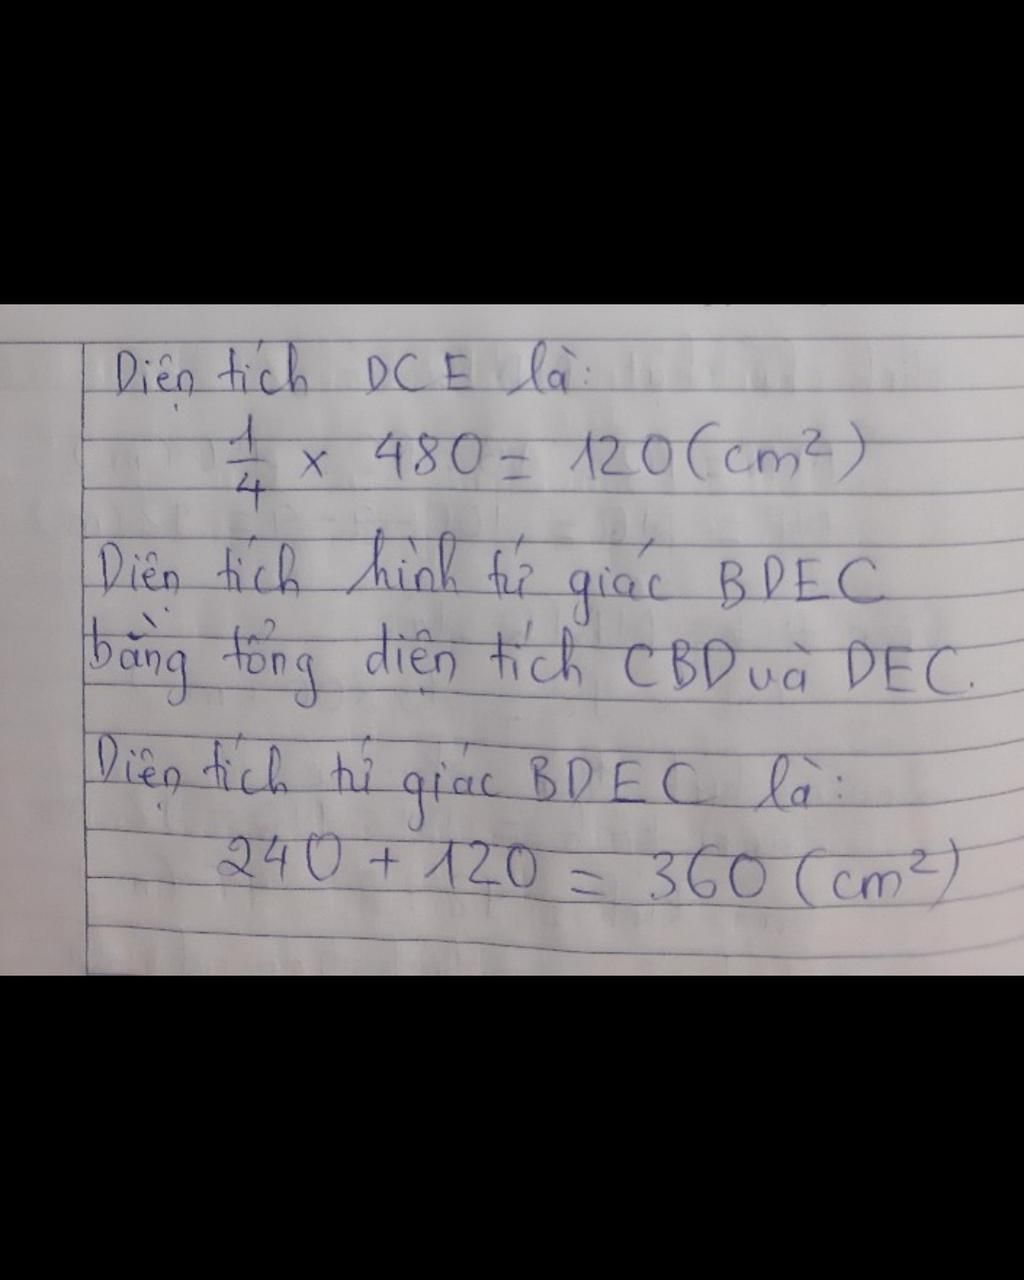 Diện tích DCE là:
1/4 x 480 = 120 (cm²)
Diện tích hình tứ giác BDEC
bằng tổng diện tích CBD và DEC.
Diện tích tứ giác BDEC là:
240 + 120 = 360 (cm²)